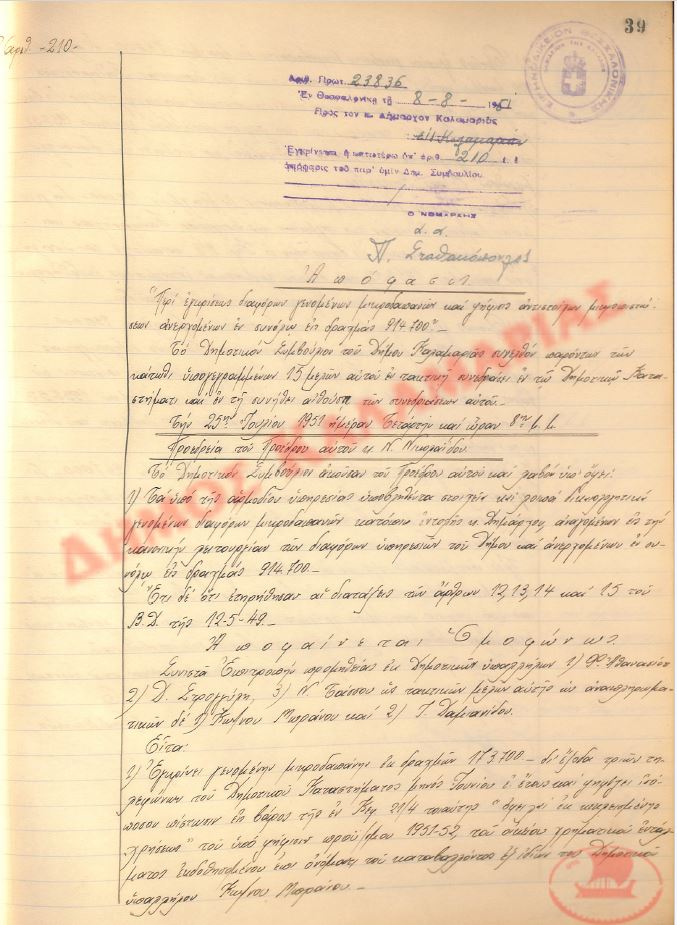 39
Αριθ. -210-
ΕΙΡΗΝΟΔΙΚΕΙΟΝ ΘΕΣΣΑΛΟΝΙΚΗΣ
Αριθ. Πρωτ. 23836
Ἐν Θεσσαλονίκῃ τῇ 8-8-1951
Πρὸς τὸν κ. Δήμαρχον Καλαμαριᾶς
εἰς Καλαμαριάν
Ἐγκρίνεται ἡ κατωτέρω ὑπ' ἀριθ. 210 ἐ. ἔ
ἀπόφασις τοῦ παρ' ὑμῖν Δημ. Συμβουλίου
Ο ΝΟΜΑΡΧΗΣ
α.α.
Π. Σταθακόπουλος
Ἀπόφασις
"Περὶ ἐγκρίσεως διαφόρων γενομένων μικροδαπανῶν καὶ ψήφισις ἀντιστοίχων μικροπιστώ-
σεων ἀνερχομένων ἐν συνόλῳ εἰς δραχμὰς 914.700"
Τὸ Δημοτικὸν Συμβούλιον τοῦ Δήμου Καλαμαριᾶς συνελθὸν παρόντων τῶν
κάτωθι ὑπογεγραμμένων 15 μελῶν αὐτοῦ ἐν τακτικῇ συνεδριάσει ἐν τῷ Δημοτικῷ Κατα-
στήματι καὶ ἐν τῇ συνήθει αἰθούσῃ τῶν συνεδριάσεων αὐτοῦ.
Τὴν 25ην Ἰουλίου 1951 ἡμέραν Τετάρτην καὶ ὥραν 8ην μ.μ.
Προεδρείᾳ τοῦ Προέδρου αὐτοῦ κ. Ν. Νικολαΐδου
Τὸ Δημοτικὸν Συμβούλιον ἀκοῦσαν τοῦ Προέδρου αὐτοῦ καὶ λαβὸν ὑπ' ὄψει:
1) Τὰ ὑπὸ τῆς ἁρμοδίου ὑπηρεσίας ὑποβληθέντα στοιχεῖα καὶ λοιπὰ δικαιολογητικὰ
γενομένων διαφόρων μικροδαπανῶν κατόπιν ἐντολῆς κ. Δημάρχου, ἀναγομένων εἰς τὴν
κανονικὴν λειτουργίαν τῶν διαφόρων ὑπηρεσιῶν τοῦ Δήμου καὶ ἀνερχομένων ἐν συ-
νόλῳ εἰς δραχμὰς 914.700-
Ἔτι δὲ ὅτι ἐτηρήθησαν αἱ διατάξεις τῶν ἄρθρων 12, 13, 14 καὶ 15 τοῦ
Β.Δ. τῆς 12-5-49.-
Ἀποφαίνεται Ὁμοφώνως
Συνιστᾶ Ἐπιτροπὴν προμηθείας ἐκ Δημοτικῶν ὑπαλλήλων 1)
2) Δ. Στρογγύλη, 3) Ν. Τάσσου ὡς τακτικῶν μελῶν αὐτῆς ὡς ἀναπληρωμα-
τικῶν δὲ 1) Κων/νου Μπράνου καὶ 2) Γ. Δαμιανίδου.
Εἶτα:
1) Ἐγκρίνει γενομένην μικροδαπάνην ἐκ δραχμῶν 173.700- δι' ἔξοδα τριῶν τη-
λεφώνων τοῦ Δημοτικοῦ Καταστήματος μηνὸς Ἰουνίου ἐ. ἔτους καὶ ψηφίζει ἰσό-
ποσον πίστωσιν εἰς βάρος τῆς ἐν Κεφ. 21/4 τοιαύτης "ὀφειλαὶ ἐκ κεκλεισμένης
χρήσεως" τοῦ ὑπὸ ψήφισιν προϋπ/σμοῦ 1951-52, τοῦ οἰκείου χρηματικοῦ ἐντάλ-
ματος ἐκδοθησομένου ἐπ' ὀνόματι τοῦ καταβαλόντος ἐξ ἰδίων του Δημοτικοῦ
ὑπαλλήλου Κων/νου Μπράνου.-
ΔΗΜΟΣ ΚΑΛΑΜΑΡΙΑΣ